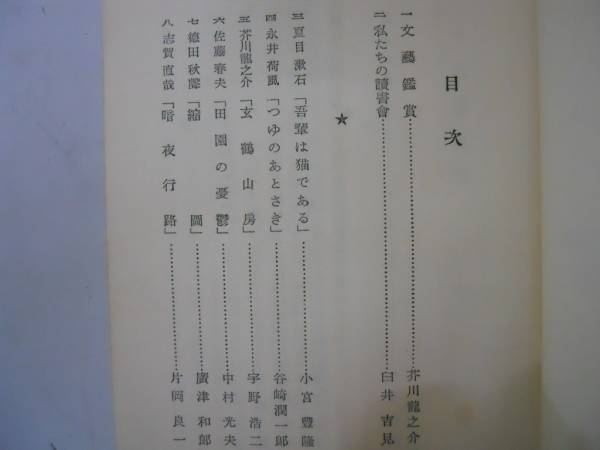 目次
一 文藝鑑賞……芥川龍之介
二 私たちの讀書會……臼井吉見
★
三 夏目漱石「吾輩は猫である」……小宮豐隆
四 永井荷風「つゆのあとさき」……谷崎潤一郎
五 芥川龍之介「玄鶴山房」……宇野浩二
六 佐藤春夫「田園の憂鬱」……中村光夫
七 德田秋聲「縮圖」……廣津和郎
八 志賀直哉「暗夜行路」……片岡良一